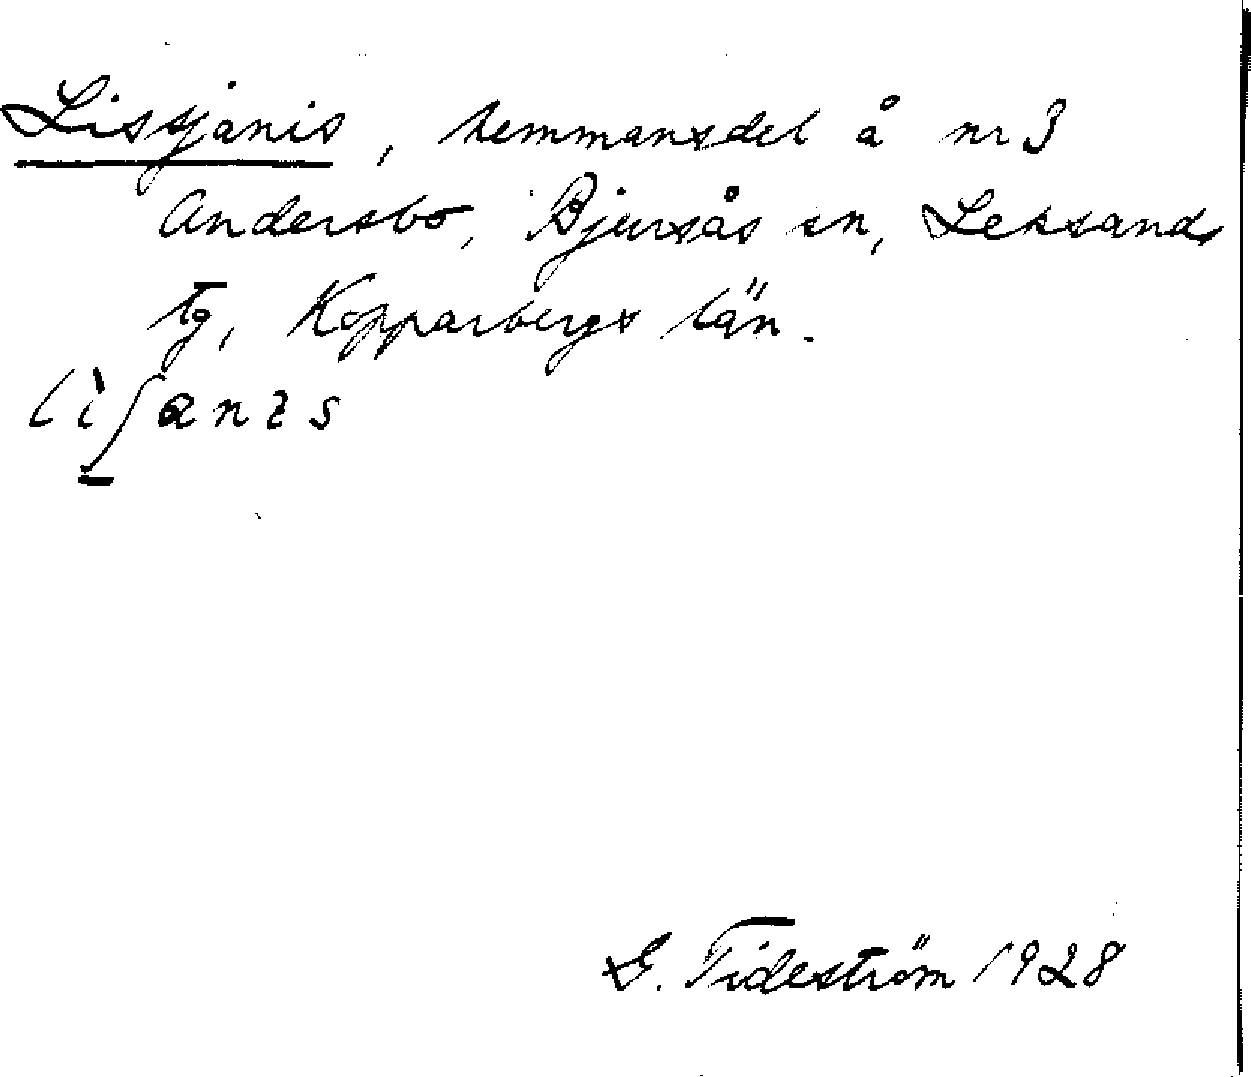 Lissjanis, hemmansdel å nr 3
Andersbo, Bjursås sn, Leksands
tg, Kopparbergs län.
G. Tideström 1928